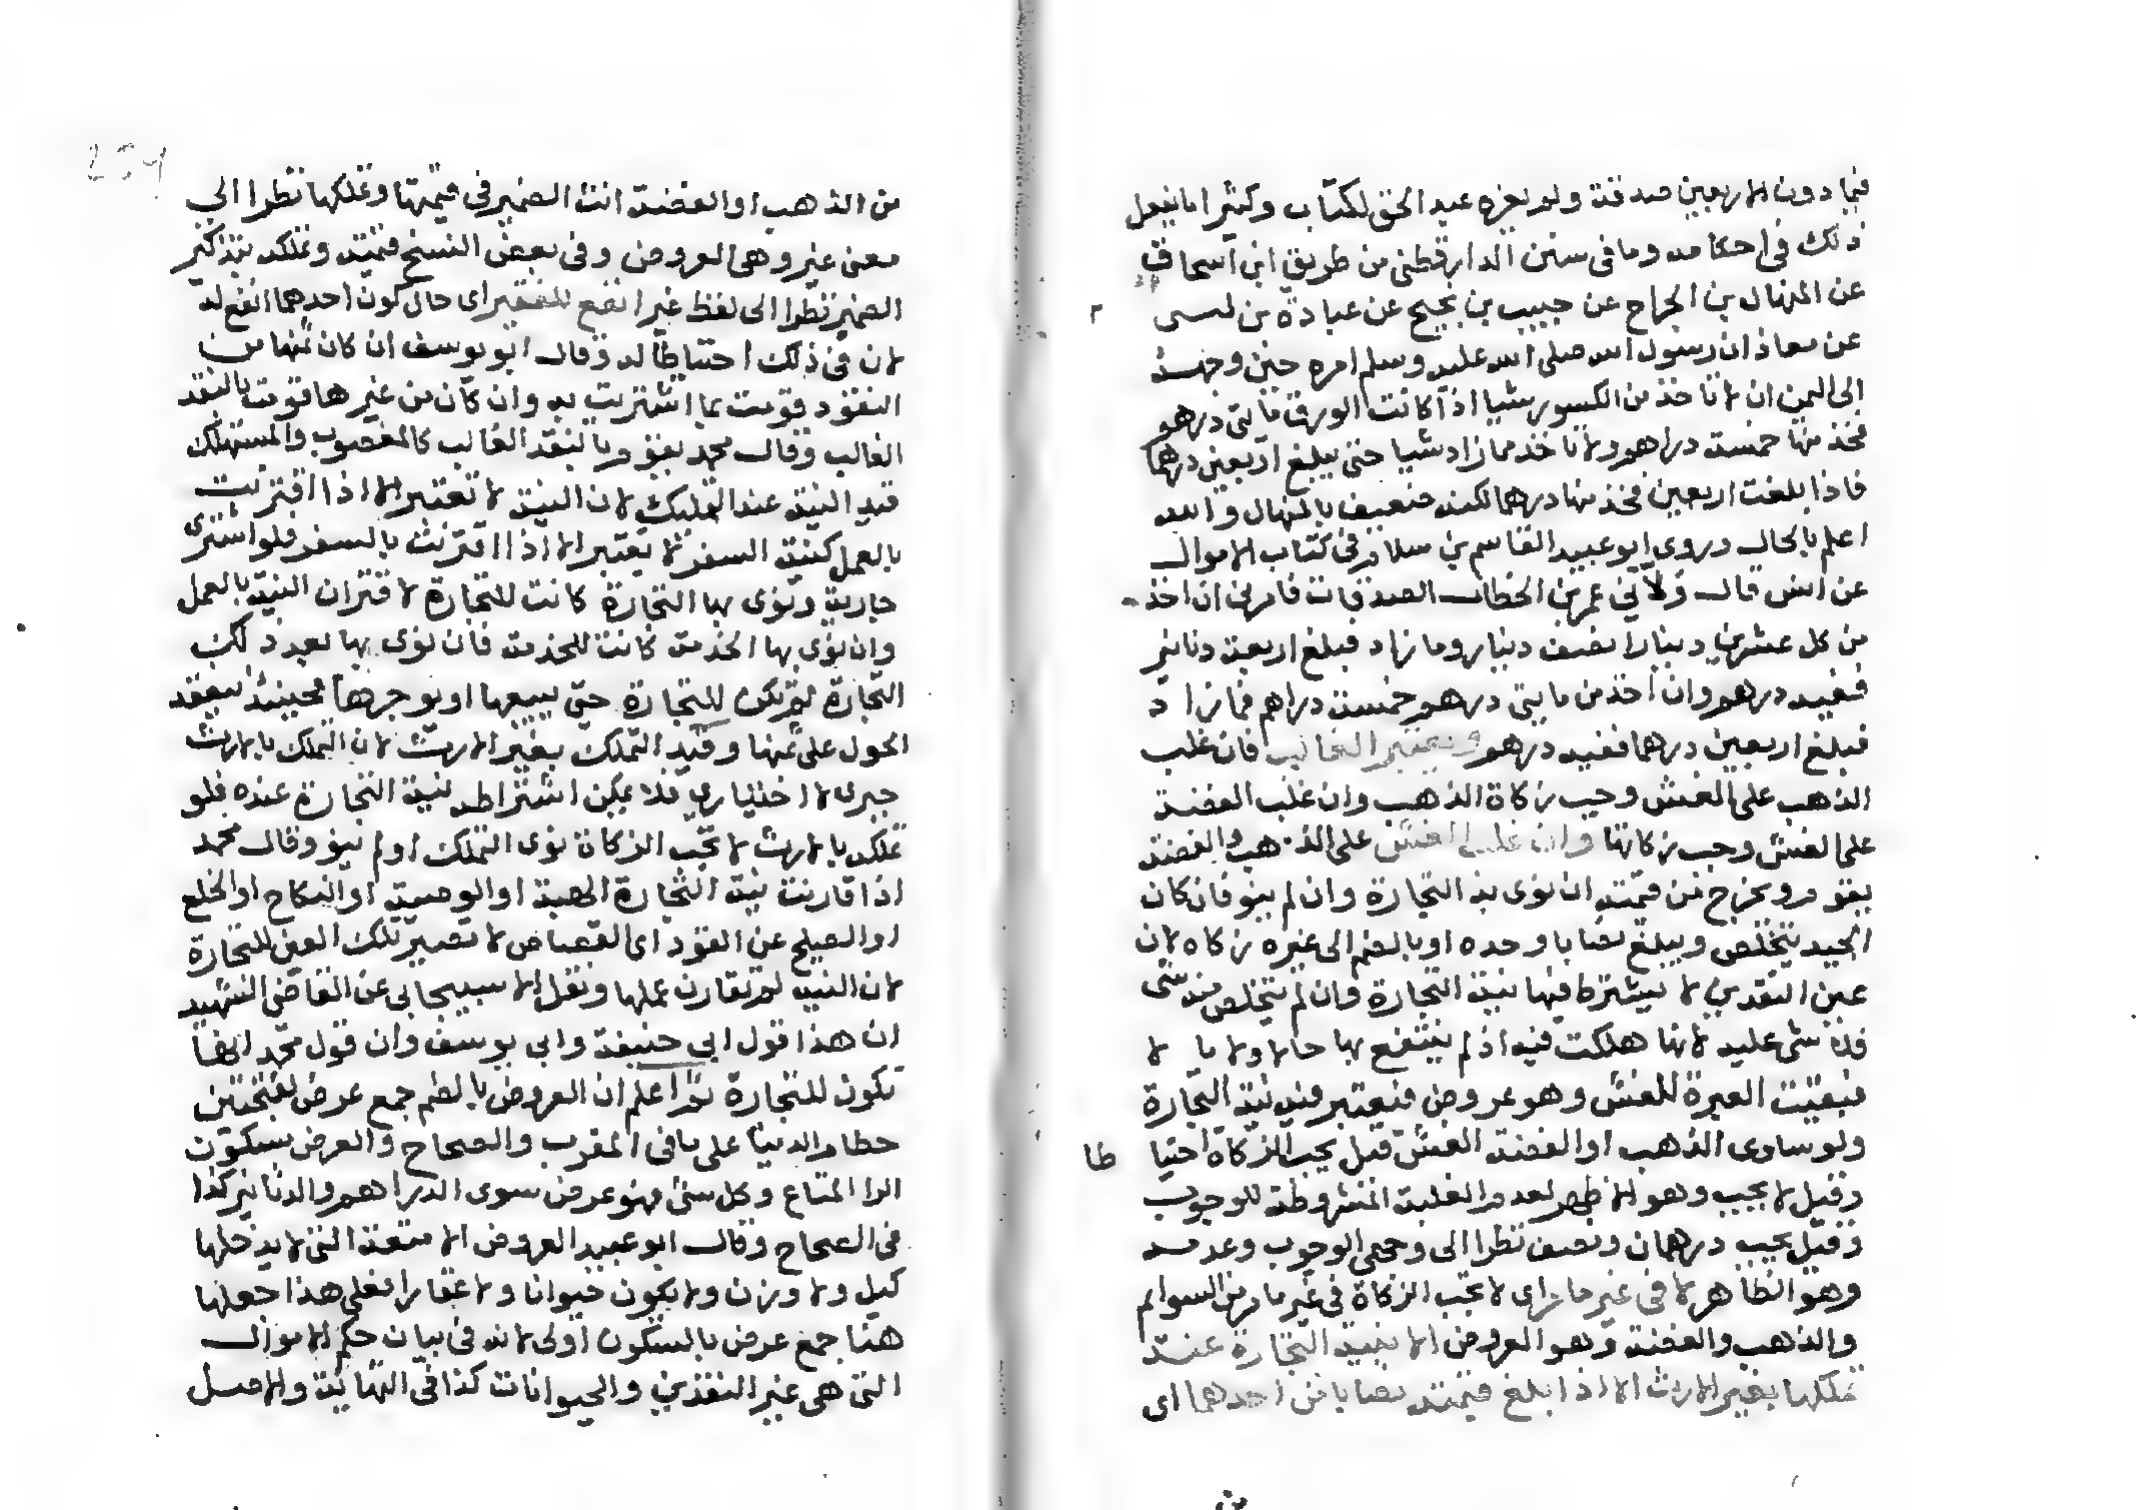 فيما دون الاربعين صدقة ولم يعزه عبد الحق لكتاب وكثيرا ما يفعل
ذلك في احكامه وما في سنن الدارقطني من طريق ابن اسحاق
عن المنهال بن الجراح عن حبيب بن نجيح عن عبادة بن نسى
عن معاذ ان رسول الله صلى الله عليه وسلم امره حين وجهه
الى اليمن ان لا تاخذ من الكسور شيا اذا كانت الورق مايتى درهم
فخذ منها خمسة دراهم ولا تاخذ مما زاد شيا حتى يبلغ اربعين درهما
فاذا بلغت اربعين فخذ منها درهما لكنه ضعيف بالمنهال والله
اعلم بالحال وروى ابو عبيد القاسم بن سلام في كتاب الاموال
عن انس قال ولاني عمر بن الخطاب الصدقات فامرني ان اخذ
من كل عشرين دينارا نصف دينار وما زاد فبلغ اربعة دنانير
ففيه درهم وان اخذ من مايتى درهم خمسة دراهم فما زاد
فبلغ اربعين درهما ففيه درهم ويعتبر الغالب فان غلب
الذهب على الغش وجب زكاة الذهب وان غلب الفضة
على الغش وجب زكاتها وان غلب الغش على الذهب والفضة
يقوم ويخرج من قيمته ان نوى به التجارة وان لم ينو فان كان
الجيد يتخلص ويبلغ نصابا وحده او بالضم الى غيره زكاه لان
عين النقدين لا يشترط فيها نية التجارة وان لم يتخلص منه شى
فلا شى عليه لانها هلكت فيه اذ لم ينتفع بها حالا ولا مالا
فبقيت العبرة للغش وهو عروض فيعتبر فيه نية التجارة
ولو ساوى الذهب او الفضة الغش قيل يجب الزكاة احتيا طا
وقيل لا يجب وهو الاظهر لعدم الغلبة المشروطة للوجوب
وقيل يجب درهمان ونصف نظرا الى وجهى الوجوب وعدمه
وهو الظاهر لا في غير ما مر اى لا تجب الزكاة في غير ما مر من السوايم
والذهب والفضة وهو العروض الا بنية التجارة عند
تملكها بغير الارث الا اذا بلغ قيمته نصابا من احدهما اى
من الذهب او الفضة انث الضمير في قيمتها وتملكها نظرا الى
معنى غير وهى العروض وفى بعض النسخ قيمته وتملكه بتذكير
الضمير نظرا الى لفظ غير انفع للفقير اى حال كون احدهما انفع له
لان في ذلك احتياطا له وقال ابو يوسف ان كان ثمنها من
النقود قومت بما اشتريت به وان كان من غيرها قومت بالنقد
الغالب وقال محمد يقوم بالنقد الغالب كالمغصوب والمستهلك
قيد النية عند التملك لان النية لا تعتبر الا اذا اقترنت
بالعمل كنية السفر لا يعتبر الا اذا اقترنت بالسفر فلو اشترى
جارية ونوى بها التجارة كانت للتجارة لاقتران النية بالعمل
وان نوى بها الخدمة كانت للخدمة فان نوى بها بعد ذلك
التجارة لم تكن للتجارة حتى يبيعها او يوجرها فحينئذ ينعقد
الحول على ثمنها وقيد التملك بغير الارث لان التملك بالارث
جبرى لا اختيارى فلا يمكن اشتراط نية التجارة عنده فلو
تملكه بالارث لا تجب الزكاة نوى التملك او لم ينو وقال محمد
اذا قارنت نية التجارة الهبة او الوصية او النكاح او الخلع
او الصلح عن القود اى القصاص لا تصير تلك العين للتجارة
لان النية لم تقارن عملها ونقل الاسبيجابى عن القاضى الشهيد
ان هذا قول ابي حنيفة وابي يوسف وان قول محمد انها
تكون للتجارة ثم اعلم ان العروض بالضم جمع عرض بفتحتين
حطام الدنيا على ما في المغرب والصحاح والعرض بسكون
الرا المتاع وكل شئ فهو عرض سوى الدراهم والدنانير كذا
في الصحاح وقال ابو عبيد العروض الامتعة التى لا يدخلها
كيل ولا وزن ولا يكون حيوانا ولا عقارا فعلى هذا جعلها
هنا جمع عرض بالسكون اولى لانه في بيان حكم الاموال
التى هى غير النقدين والحيوانات كذا في النهاية والاصل